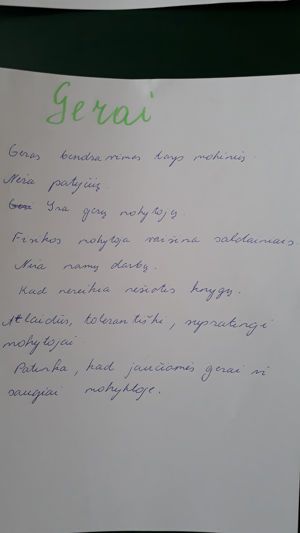 Gerai
Geras bendravimas tarp mokinių.
Nėra patyčių.
Yra gerų mokytojų.
Fizikos mokytoja vaišina saldainiais.
Nėra namų darbų.
Kad nereikia nešiotis knygų.
Atlaidūs, tolerantiški, supratingi
mokytojai.
Patinka, kad jaučiamės gerai ir
saugiai mokykloje.